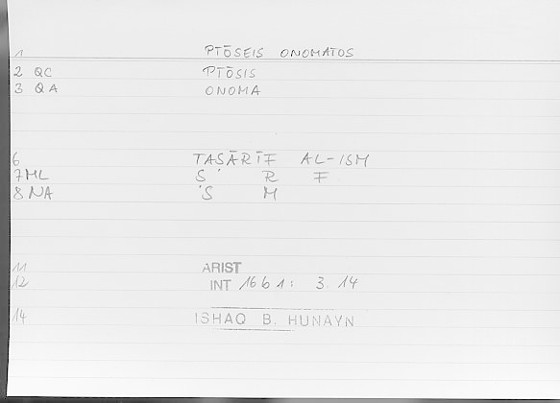 1 PTŌSEIS ONOMATOS
2 QC PTŌSIS
3 QA ONOMA
6 TASĀRĪF AL-ISM
7 ML S R F
8 NA 'S M
11 ARIST
12 INT 16b1: 3.14
14 ISHAQ B. HUNAYN